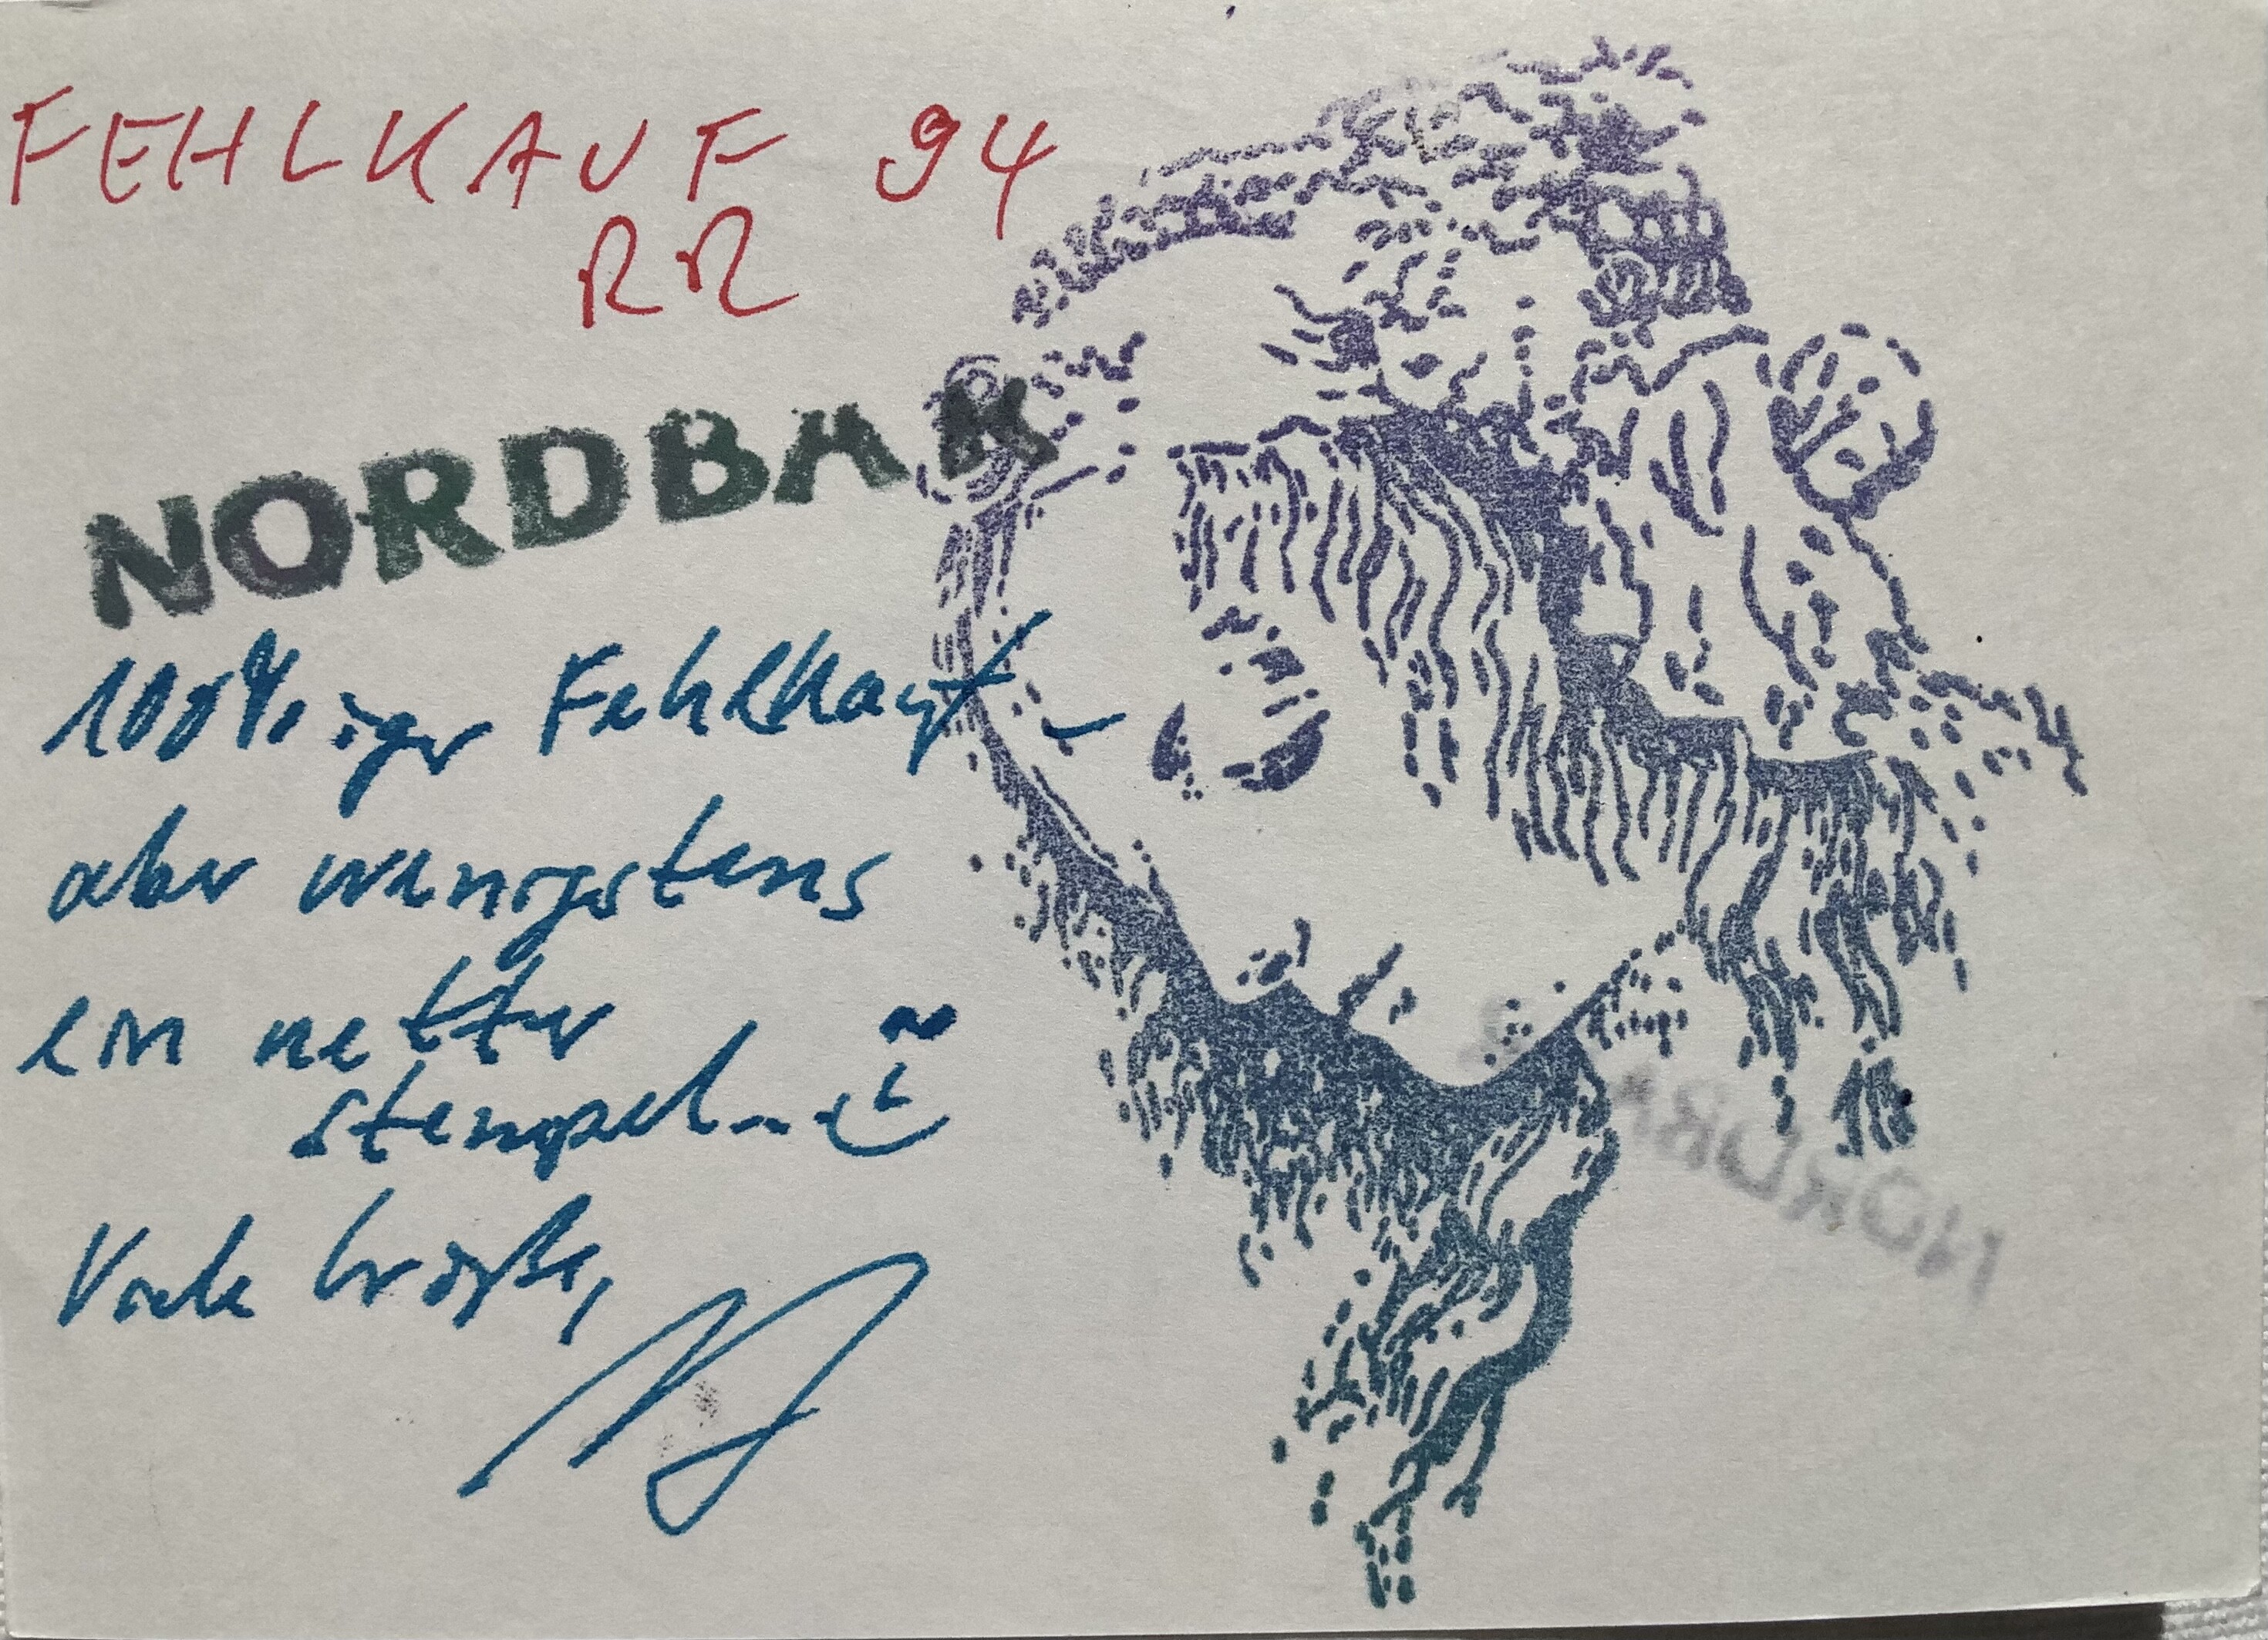 FEHLKAUF 94
RR
NORDBAK
100%iger Fehlkauf –
aber wenigstens
ein netter
Stempel...
Viele Grüße,
NORDBAK